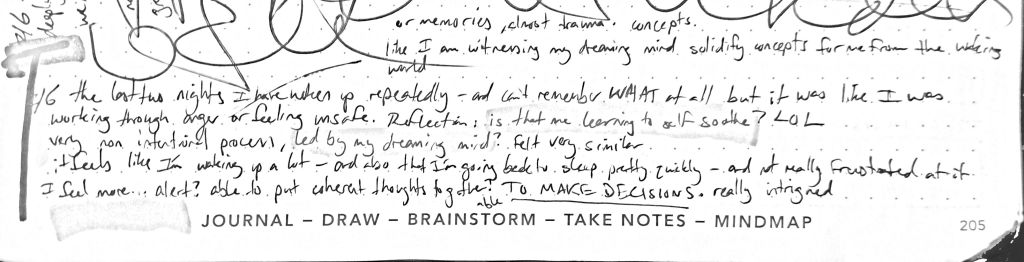 7/6
or memories, almost trauma. concepts.
like I am witnessing my dreaming mind solidify concepts for me from the waking
world
7/6 the last two nights I have woken up repeatedly - and can't remember WHAT at all but it was like I was
working through anger or feeling unsafe. Reflection: is that me learning to self soothe? LOL
very non intentional process, led by my dreaming mind? felt very similar.
it feels like I'm waking up a lot - and also that I'm going back to sleep pretty quickly - and not really frustrated at it.
I feel more... alert? able to put coherent thoughts together? able TO MAKE DECISIONS. really intrigued
JOURNAL – DRAW – BRAINSTORM – TAKE NOTES – MINDMAP
205